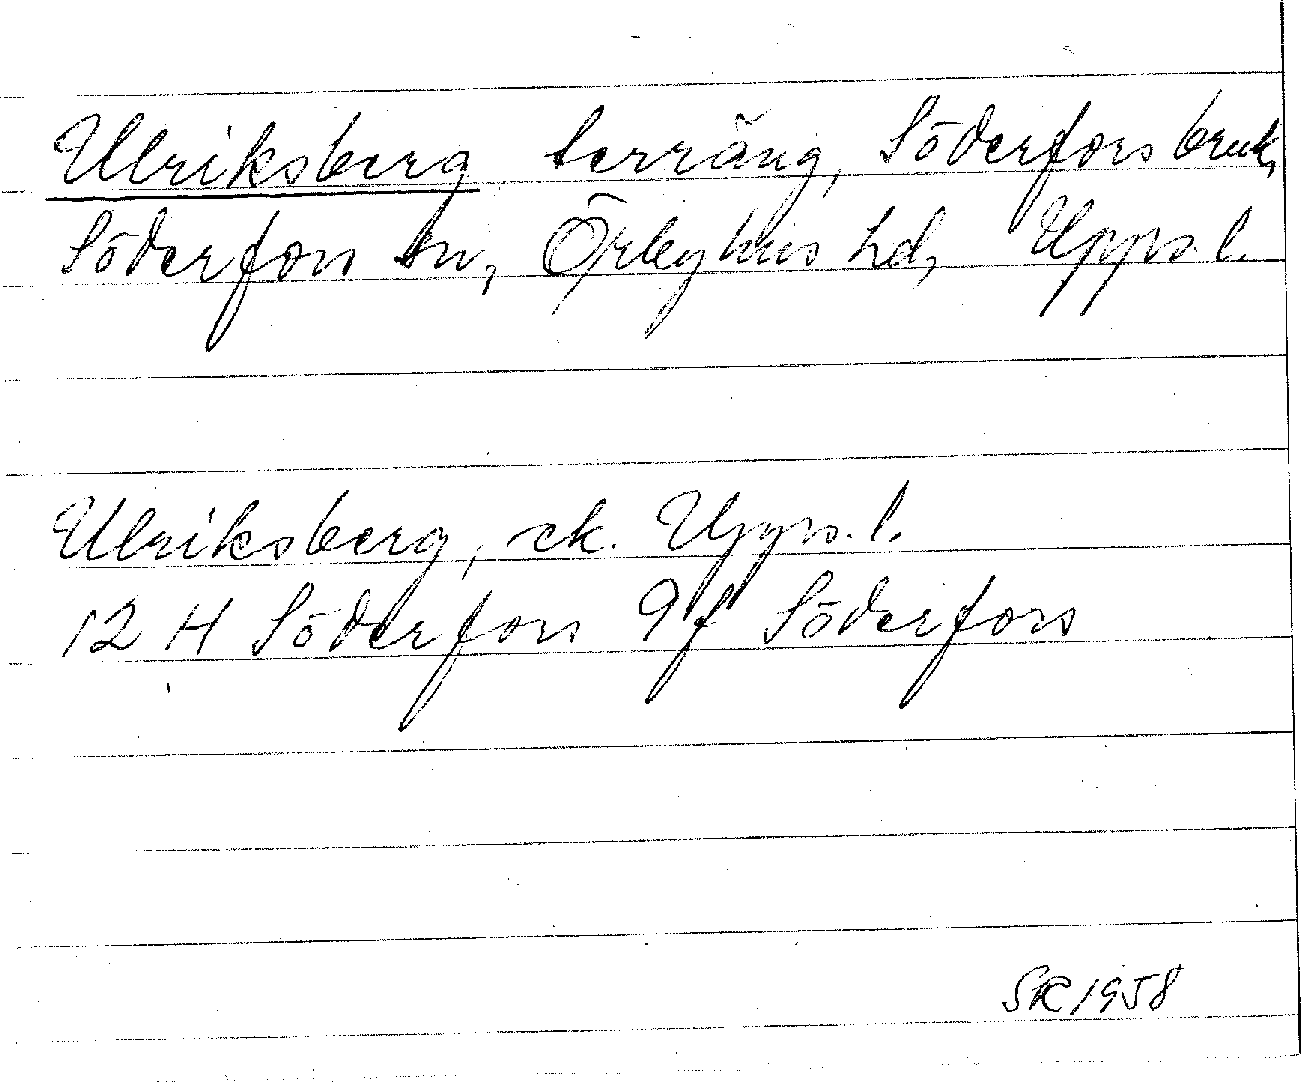 Ulriksberg terräng, Söderfors bruk,
Söderfors sn, Örbyhus hd, Upps. l.
Ulriksberg, ek. Upps. l.
12 H Söderfors 9f Söderfors
SR 1958